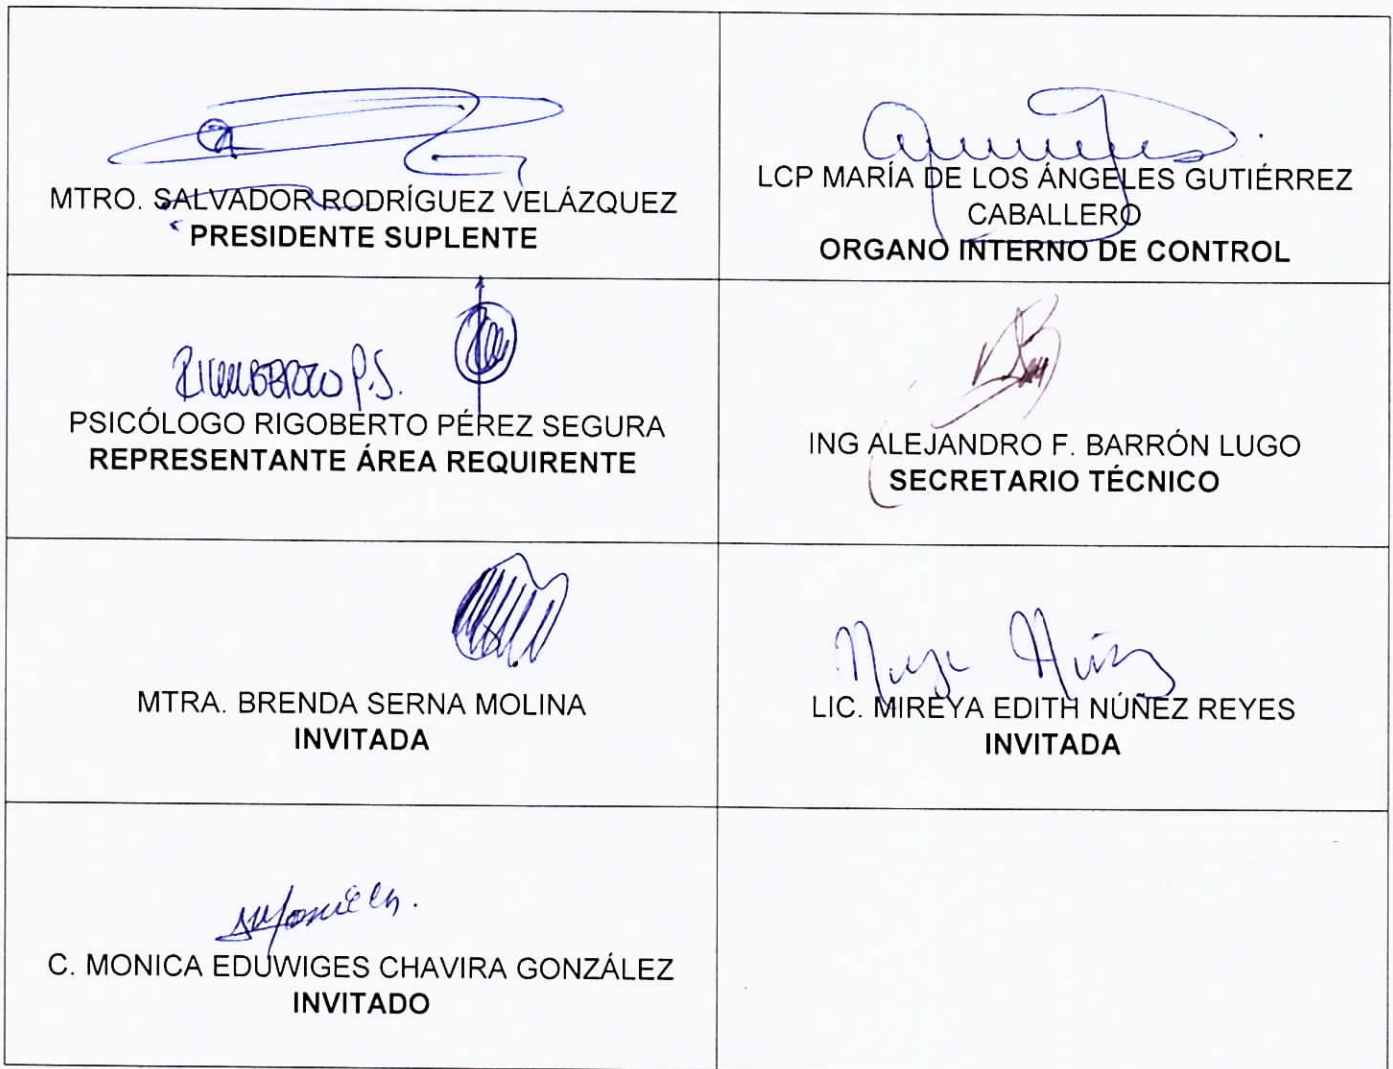 MTRO. SALVADOR RODRÍGUEZ VELÁZQUEZ
PRESIDENTE SUPLENTE
LCP MARÍA DE LOS ÁNGELES GUTIÉRREZ
CABALLERO
ORGANO INTERNO DE CONTROL
P.S.
PSICÓLOGO RIGOBERTO PÉREZ SEGURA
REPRESENTANTE ÁREA REQUIRENTE
ING ALEJANDRO F. BARRÓN LUGO
SECRETARIO TÉCNICO
MTRA. BRENDA SERNA MOLINA
INVITADA
LIC. MIREYA EDITH NÚÑEZ REYES
INVITADA
C. MONICA EDUWIGES CHAVIRA GONZÁLEZ
INVITADO